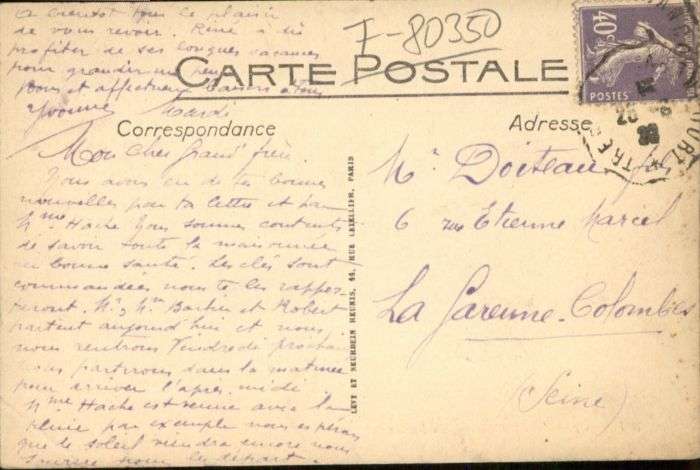 CARTE POSTALE
F-80350
40c
POSTES
Correspondance
Adresse
Mardi
Mon cher Grand frère.
Nous avons eu de tes bonnes
nouvelles par ta lettre et par
Mme Hache. Nous sommes contents
de savoir toute la maisonnée
en bonne santé. Les clés sont
commandées nous te les rappor-
terons. Mr, Mme Barbier et Robert
partent aujourd'hui et nous
nous rentrons Vendredi prochain
nous partirons dans la matinée
pour arriver l'après-midi.
Mme Hache est venue avec la
pluie par exemple nous espérons
que le soleil viendra encore nous
sourire pour le départ.
A bientôt tous le plaisir
de vous revoir. René a dû
profiter de ses longues vacances
pour grandir un peu
Bons et affectueux baisers à tous
Yvonne
LEVY ET NEURDEIN REUNIS, 44, RUE LETELLIER, PARIS
Mr Doiteau fils
6 rue Etienne Marcel
La Garenne-Colombes
(Seine)